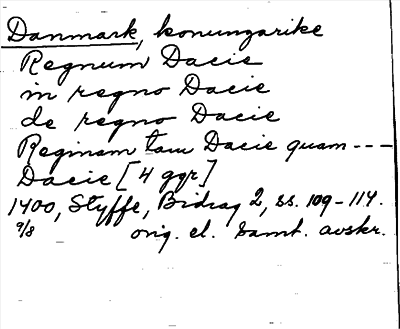 Danmark, konungarike
Regnum Dacie
in regno Dacie
de regno Dacie
Reginam tam Dacie quam ---
Dacie [4 ggr]
1400, Styffe, Bidrag 2, ss. 109-114.
9/8 orig. el. samt. avskr.